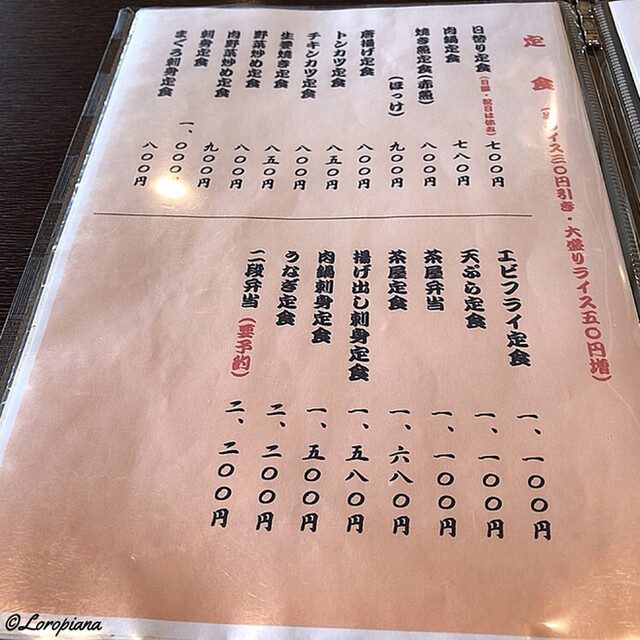 定食 イス三〇円引き・大盛りライス五〇円増)
日替り定食(日曜・祝日は休み) 七〇〇円
肉鍋定食 七八〇円
焼き魚定食(赤魚) 八〇〇円
(ほっけ) 九〇〇円
唐揚げ定食 八〇〇円
トンカツ定食 八五〇円
チキンカツ定食 八〇〇円
生姜焼き定食 八五〇円
野菜炒め定食 八〇〇円
肉野菜炒め定食 九〇〇円
刺身定食 一、〇〇〇円
まぐろ刺身定食 八〇〇円
エビフライ定食 一、一〇〇円
天ぷら定食 一、一〇〇円
茶屋弁当 一、一〇〇円
茶屋定食 一、六八〇円
揚げ出し刺身定食 一、五八〇円
肉鍋刺身定食 一、五〇〇円
うなぎ定食 二、二〇〇円
二段弁当(要予約) 二、二〇〇円
©Loropiana